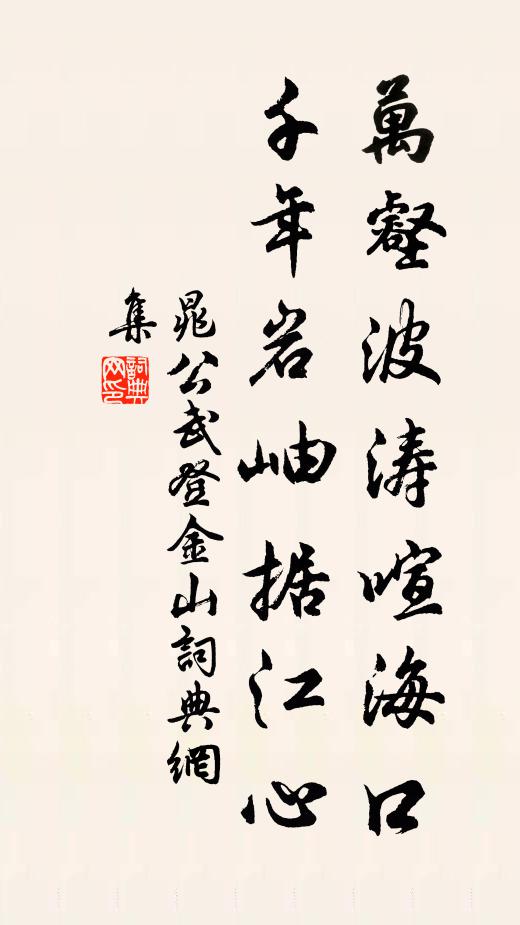 萬壑波涛喧海口
千年岩岫据江心
晁公武登金山詞典網
集
詞典网印